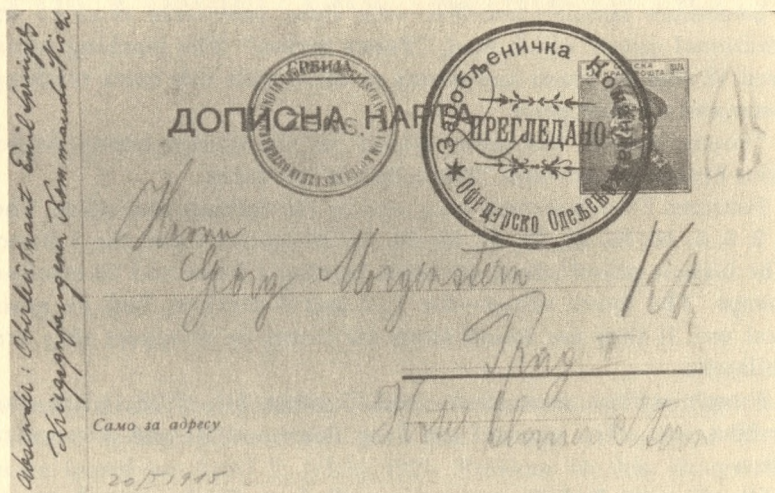 Absender: Oberleutnant Emil
Kriegsgefangenen Kommando Nisch
СРБИЈА
ДОПИСНА КАРТА
Заробљеничка Команда
ПРЕГЛЕДАНО
Официрско Одељење
Herrn
Georg Morgenstern
Prag II
Hotel blauer Stern
Само за адресу
20/I 1915